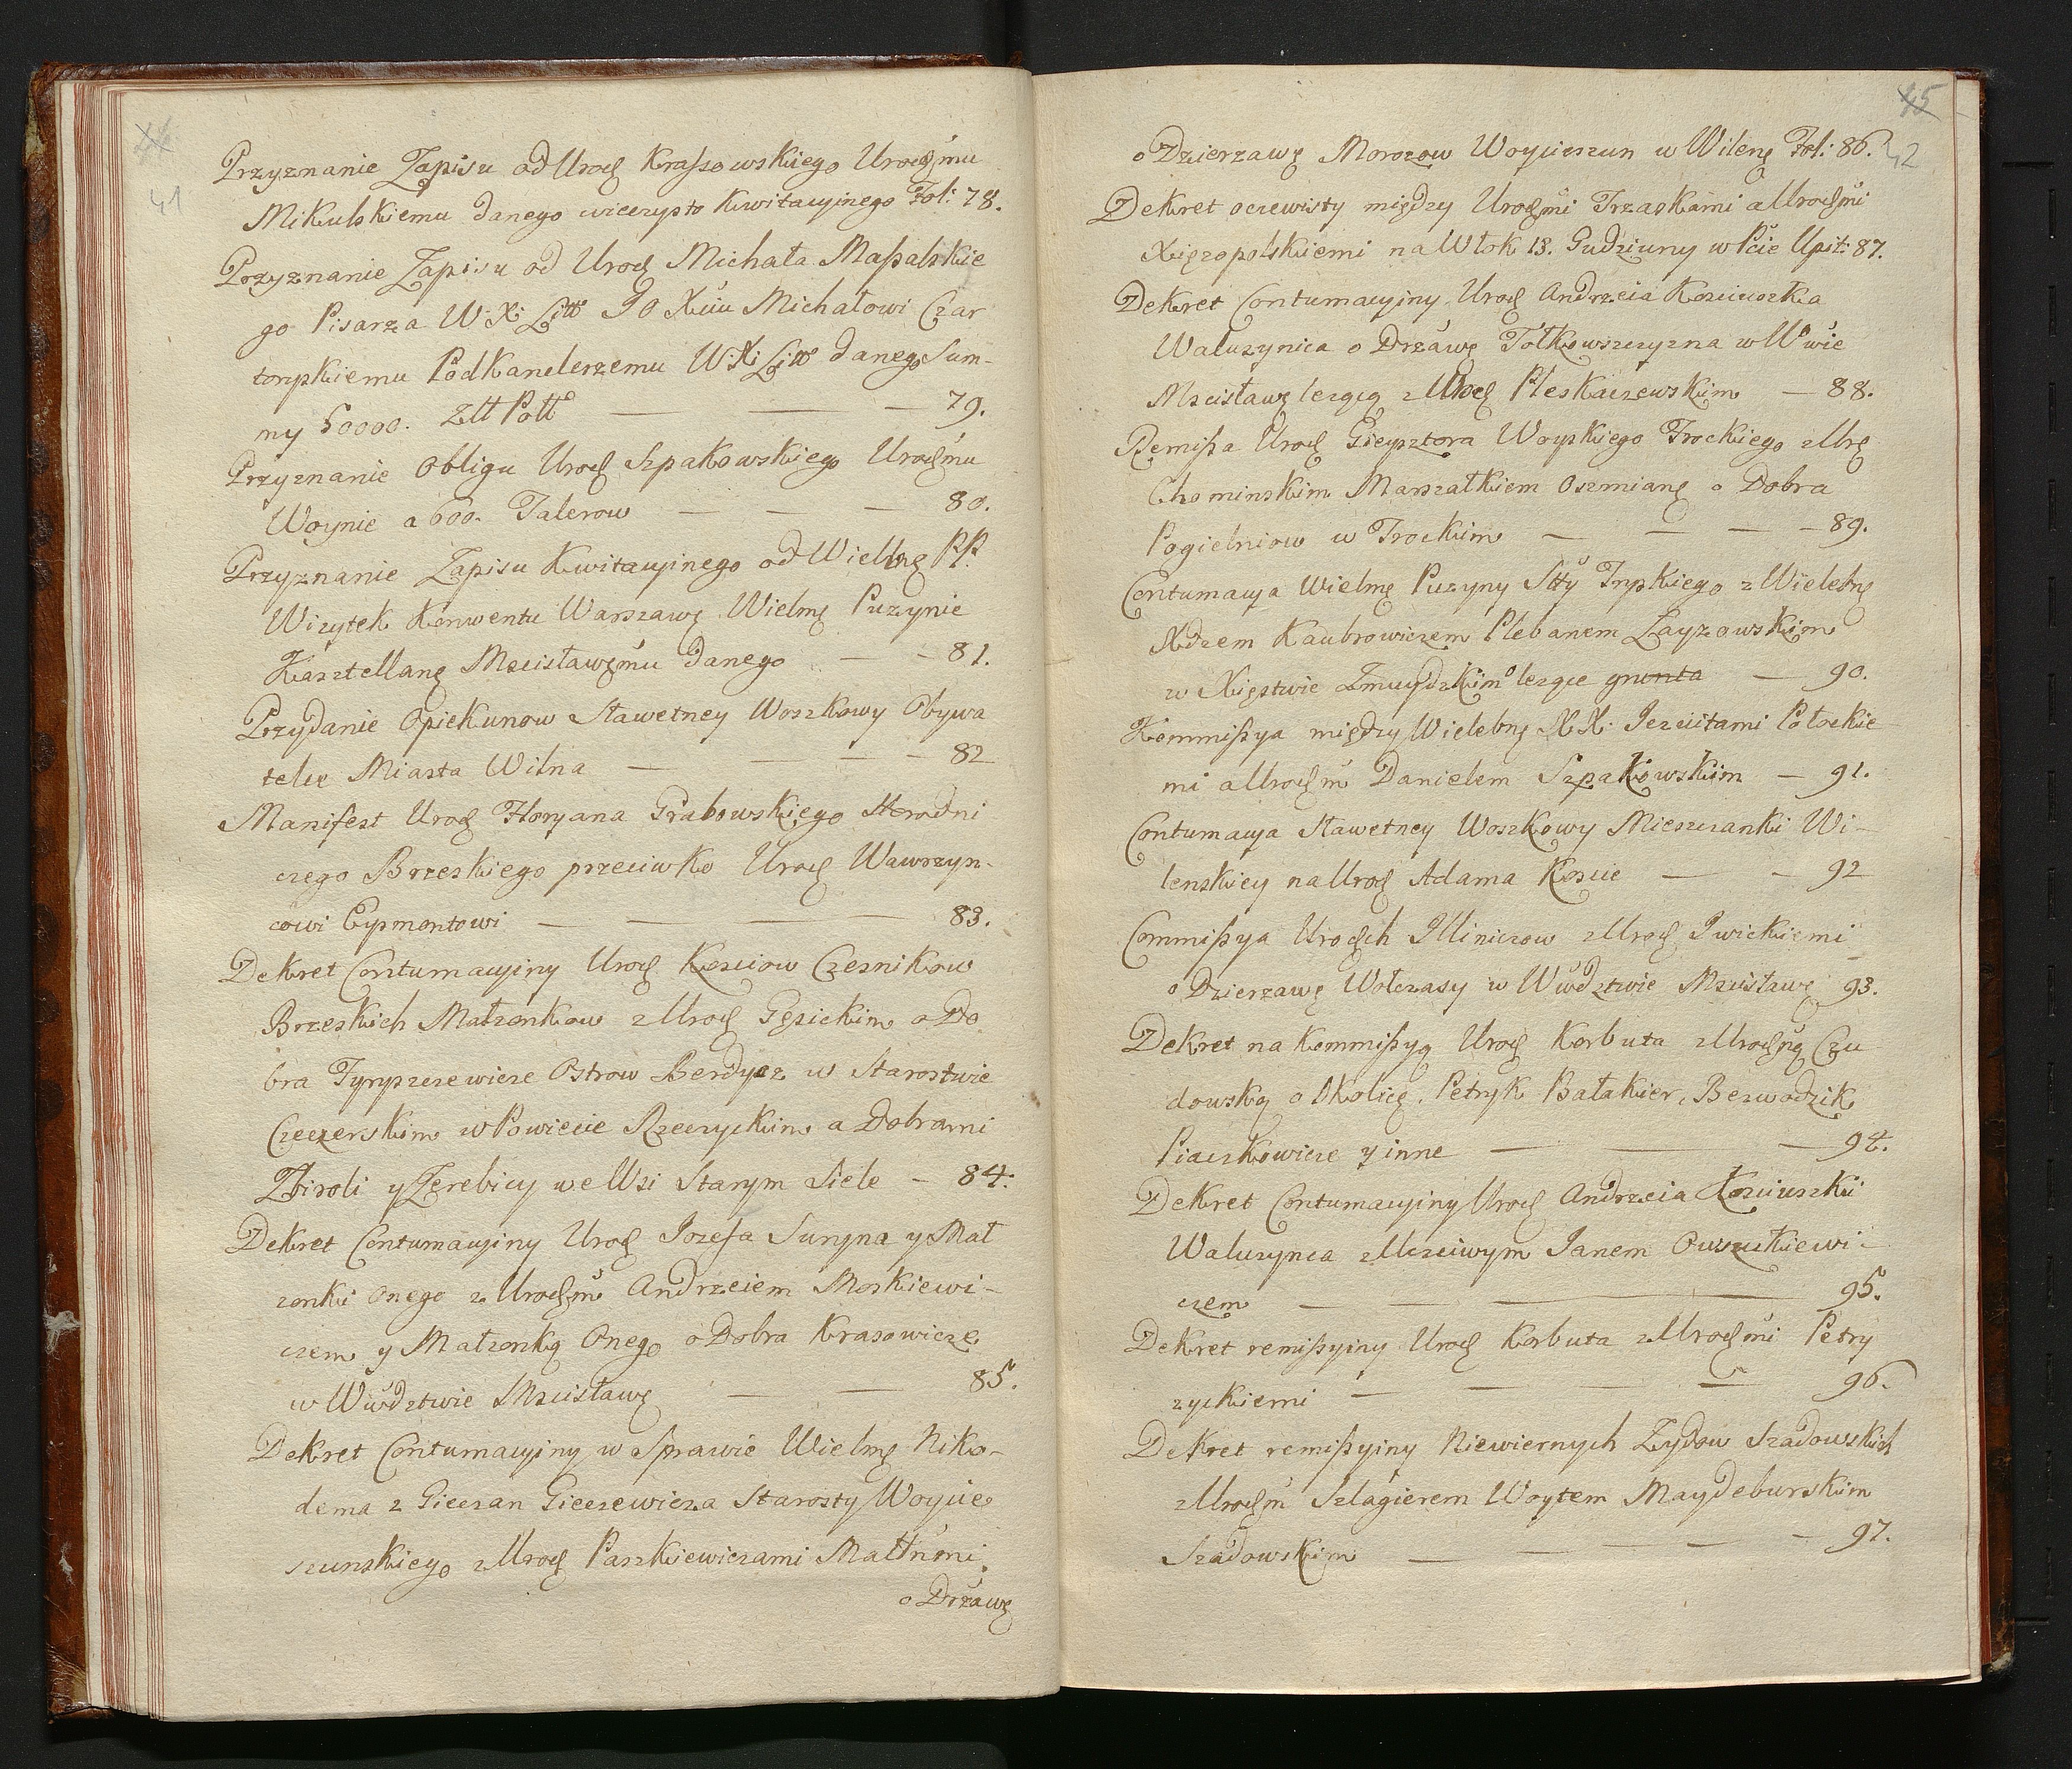 41
Przyznanie Zapisu od Urod Kraszowskiego Urodzmu
Mikulskiemu danego wieczysto Kwitacyinego Fol: 78.
Przyznanie Zapisu od Urod Michała Massalskie
go Pisarza W. X: Litto JO Xciu Michałowi Czar
toryskiemu PodKanclerzemu W: X: Litto danego Sum-
my 50000. Złł Poll — — — 79.
Przyznanie Obligu Urod SzpaKowskiego Urodzmu
Woynie a 600. Talerow — — — 80.
Przyznanie Zapisu Kwitacyinego od Wielbnę PP.
Wizytek Konwentu Warszawę Wielmę Puzynie
Kasztellanę Mscisławęmu danego — — 81.
Przydanie OpieKunow Sławetney Woszkowy Obywa
telce Miasta Wilna — — — — 82
Manifest Urod Floryana Grabowskiego Horodni
czego Brzeskiego przeciwko Urod Wawrzyn-
cowi Eypmontowi — — — — 83.
DeKret Contumacyiny Urod Kosciow CzesniKow
Brzeskich MałzonKow z Urod Gęsickim o Do
bra Tynpszewicze Ostrow Berdycz w Starostwie
Czeczerskim w Powiecie Rzeczyckim a Dobrami
Zbiroli y Zerebicy we Wsi Starym Siele — 84.
DeKret Contumacyiny Urod Jozefa Suryna y Mał
zonki Onego z Urodzm Andrzeiem Moskiewi-
czem y Małzonką Onego o Dobra Krasowicze
w Wwdztwie Mscisławę — — 85.
DeKret Contumacyiny w Sprawie Wielmę Niko-
dema z Gieczan Gieczewicza Starosty Woycie
szunskiego z Urod Paszkiewiczami Małłnmi
o Drżawę
45
42
o Dzierzawę Morozow Woycieszun w Wilenę Fol: 86.
DeKret oczewisty między Urodzmi Trzaskami a Urodzmi
Xięzopolskiemi na Włok 13. Gudziuny w Pcie Upit: 87.
DeKret Contumacyiny Urod Andrzeia Kosciuszka
Waluzynica o Drżawę TołKowszczyzna w Wwie
Mscisławę lezącą z Urod PlesKaczewskim — 88.
Remissa Urod Gieysztora Woyskiego Trockiego z Urę
Chominskim Marszałkiem Oszmianę o Dobra
Pogielniow w Trockim — — — 89.
Contumacya Wielmę Puzyny Stty Inpkiego z Wielebnę
Xdzem Kaubrowiczem Plebanem Łayzowskim
w Xięstwie Zmuydzkim o lezące grunta — 90.
Kommissya między Wielebnę XX. Jezuitami Połockie
mi a Urodzm Danielem SzpaKowskim — 91.
Contumacya Sławetney Woszkowy Mieszczanki Wi-
lenskiey na Urod Adama Koscie — — 92
Commissya Urodzch Illiniczow z Urod Iwickiemi
o Dzierzawę Wołczasy w Wwdztwie Mscisławę 93.
DeKret na Kommissyą Urod Korbuta z Urodzną Czu
dowską o Okolicę. Petryk Bałakier, Berwodzik
Piaczkowicze y inne — — — 94.
DeKret Contumacyiny Urod Andrzeia Kosciuszki
Waluzynca z Uczciwym Janem Owsutkiewi-
czem — — — — 95.
DeKret remissyiny Urod Korbuta z Urodzmi Petry
zyckiemi — — — — 96.
DeKret remissyiny Niewiernych Zydow Szadowskich
z Urodzm Szlagierem Woytem Maydeburskim
Szadowskim — — — — 97.